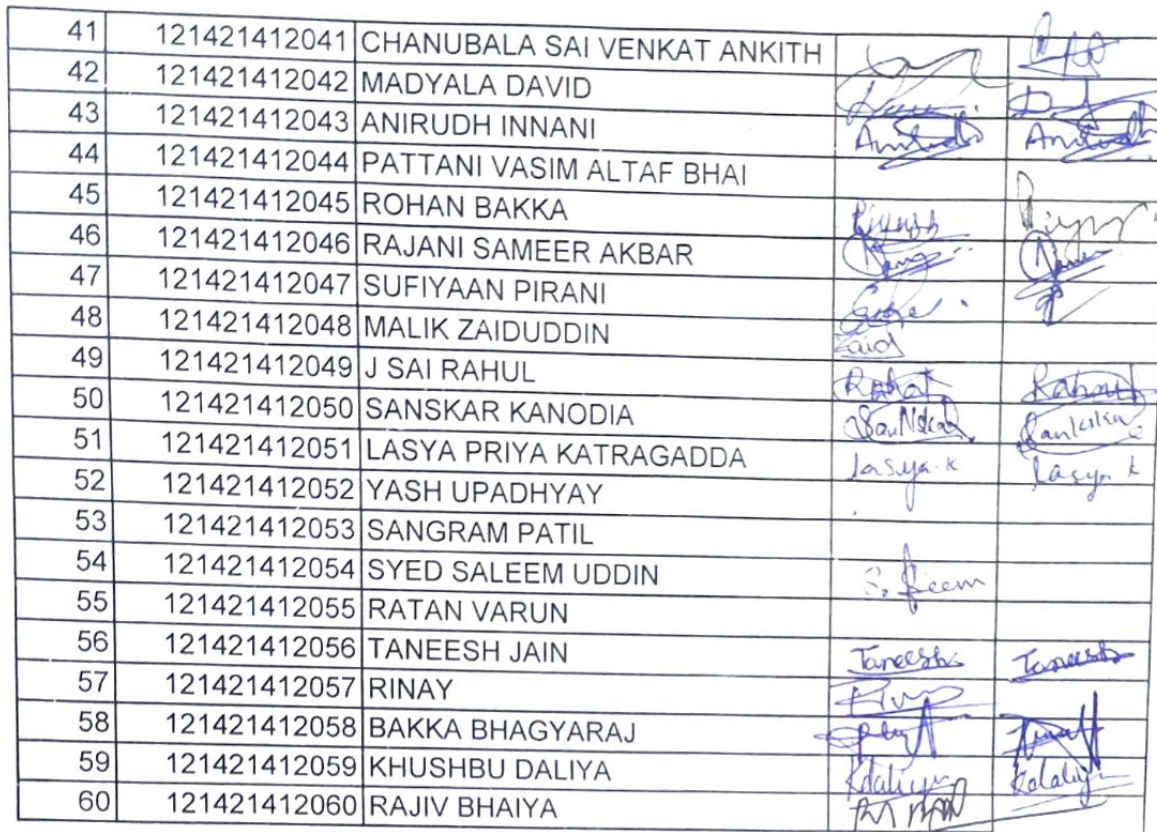 41 121421412041 CHANUBALA SAI VENKAT ANKITH
42 121421412042 MADYALA DAVID
43 121421412043 ANIRUDH INNANI Anirudh Anirudh
44 121421412044 PATTANI VASIM ALTAF BHAI
45 121421412045 ROHAN BAKKA
46 121421412046 RAJANI SAMEER AKBAR
47 121421412047 SUFIYAAN PIRANI
48 121421412048 MALIK ZAIDUDDIN Zaid
49 121421412049 J SAI RAHUL Rahul Rahul
50 121421412050 SANSKAR KANODIA
51 121421412051 LASYA PRIYA KATRAGADDA Lasya.k Lasya k
52 121421412052 YASH UPADHYAY
53 121421412053 SANGRAM PATIL
54 121421412054 SYED SALEEM UDDIN
55 121421412055 RATAN VARUN
56 121421412056 TANEESH JAIN Taneesh Taneesh
57 121421412057 RINAY
58 121421412058 BAKKA BHAGYARAJ
59 121421412059 KHUSHBU DALIYA Kdaliya Kdaliya
60 121421412060 RAJIV BHAIYA